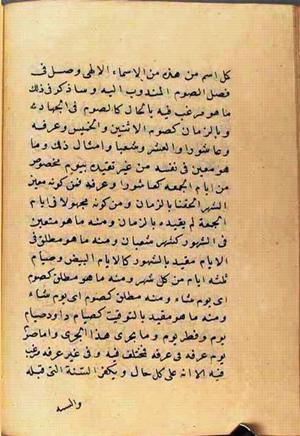 كل اسم من هذه من الاسماء الالهى وصل فى
فصل الصوم المندوب اليه وساذكر فى ذلك
ما هو مرغب فيه بالحال كالصوم فى الجهاد
وبالزمان كصوم الاثنين والخميس وعرفه
وعاشورا والعشر وشعبان وامثال ذلك وما
هو معين فى نفسه من غير تقييده بيوم مخصوص
من ايام الجمعه كعاشورا وعرفه فمن كونه معين
الشهر الحقناه بالزمان ومن كونه مجهولا فى ايام
الجمعة لم يقيده بالزمان ومنه ما هو متعين
فى الشهور كشهر شعبان ومنه ما هو مطلق فى
الايام مقيد بالشهور كالايام البيض وصيام
ثلثه ايام من كل شهر ومنه ما هو مطلق كصوم
اى يوم شاء ومنه مطلق كصوم اى يوم شاء
ومنه ما هو مقيد بالتوقيت كصيام داود صيام
يوم وفطر يوم وما يجرى هذا المجرى واما صوم
يوم عرفه فى عرفه فمختلف فيه وفى غير عرفه مرغب
فيه الا انه على كل حال ويكفر السنة التى قبله
والسنه